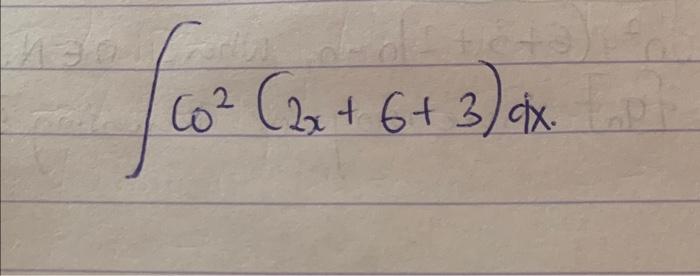 ∫ Co² (2x + 6 + 3) dx.